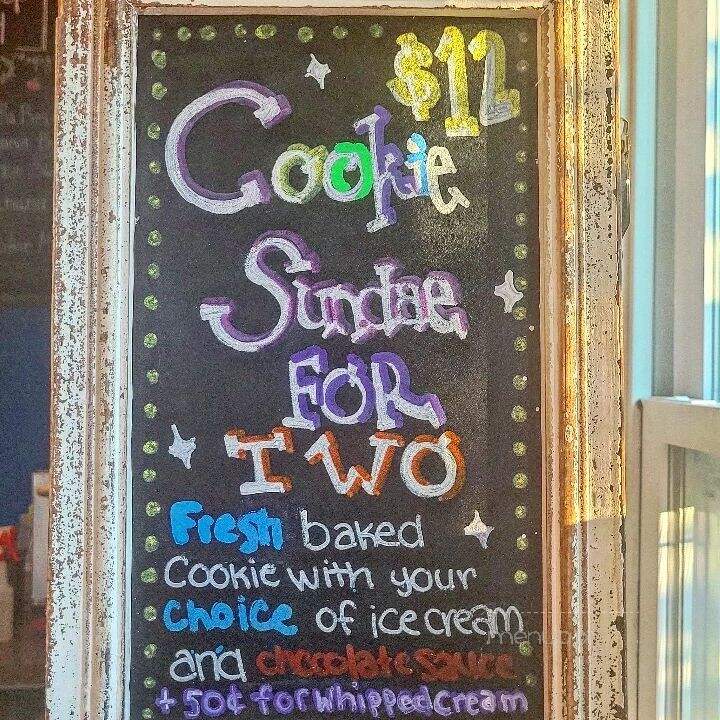 $12
Cookie
Sundae
FOR
TWO
Fresh baked
Cookie with your
choice of ice cream
and chocolate sauce
+ 50¢ for whipped cream